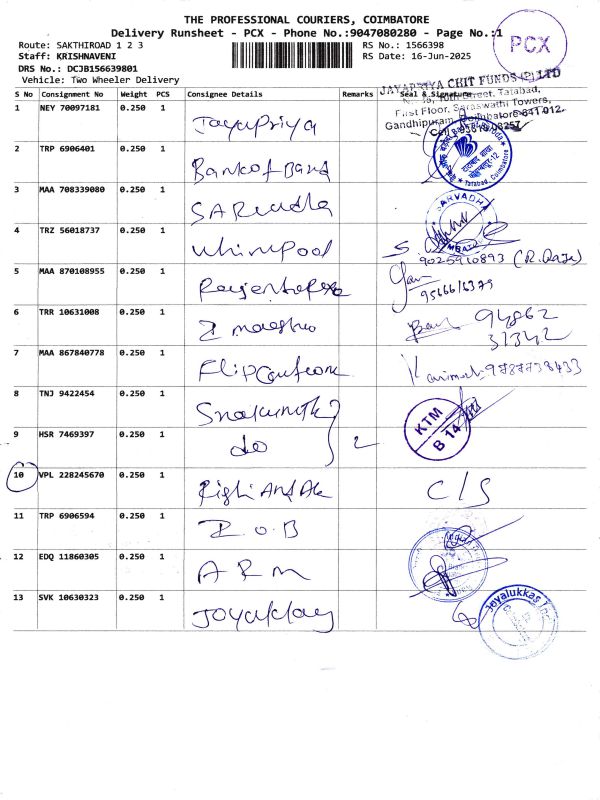 THE PROFESSIONAL COURIERS, COIMBATORE
Delivery Runsheet - PCX - Phone No.:9047080280 - Page No.:1
PCX
Route: SAKTHIROAD 1 2 3
RS No.: 1566398
Staff: KRISHNAVENI
RS Date: 16-Jun-2025
DRS No.: DCJB156639801
Vehicle: Two Wheeler Delivery
S No Consignment No Weight PCS Consignee Details Remarks Seal & Signature
JAYAPRIYA CHIT FUNDS (P) LTD
Street, Tatabad,
First Floor, Saraswathi Towers,
Gandhipuram, Coimbatore-641 012.
1 NEY 70097181 0.250 1 Jayapriya
2 TRP 6906401 0.250 1 Bank of Band
Tatabad, Coimbatore
3 MAA 708339080 0.250 1
SARVADHA
4 TRZ 56018737 0.250 1 Whirlpool
9025910893 (R.Raju)
5 MAA 870108955 0.250 1
9566616379
6 TRR 10631008 0.250 1
94862
31342
7 MAA 867840778 0.250 1
9787738433
8 TNJ 9422454 0.250 1
KTM
B 14
9 HSR 7469397 0.250 1 do 2
10 VPL 228245670 0.250 1 C/S
11 TRP 6906594 0.250 1 B.O.B
12 EDQ 11860305 0.250 1 A R M
13 SVK 10630323 0.250 1
Joyalukkas